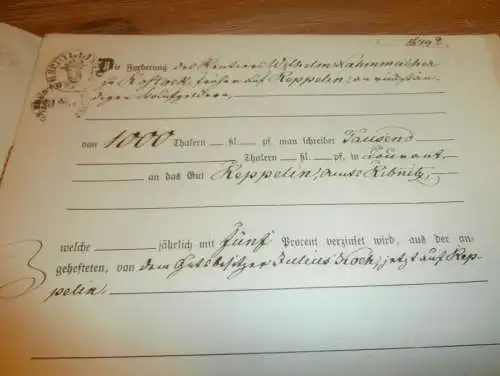 Die Forderung des Rentiers Wilhelm Kahnmacher
zu Rostock, früher auf Keppelin, an rückstän-
digen Kaufgeldern,
von 1000 Thalern — ßl. — pf. man schreibe Tausend
Thalern — ßl. — pf. in Courant
an das Gut Keppelin, Amts Ribnitz,
welche jährlich mit fünf Procent verzinset wird, aus der an-
gehefteten, von dem Gutsbesitzer Julius Koch, jetzt auf Kep-
pelin,